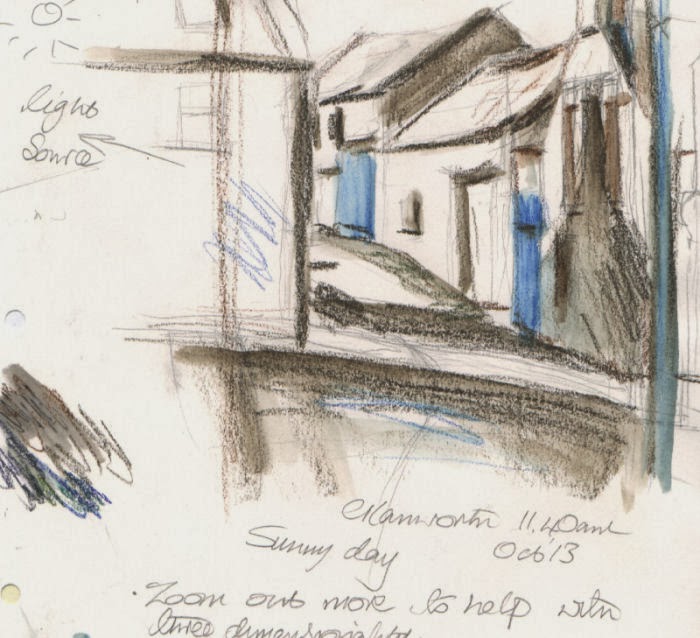 light
Source
Charmouth 11.40am
Sunny day Oct '13
. Zoom out more to help with
three dimensionality.